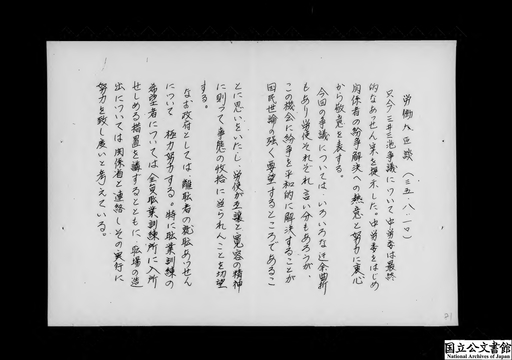 労働大臣談（三五・八・一〇）
只今三井三池争議について中労委は最終
的なあっせん案を提示した。中労委をはじめ
関係者の紛争解決への熱意と努力に衷心
から敬意を表する。
今回の争議については、いろいろな
もあり労使それぞれ言い分もあろうが、
この機会に紛争を平和的に解決することが
国民世論の強く要望するところであるこ
とに思いをいたし、労使が互譲と寛容の精神
に則って事態の収拾に当られんことを切望
する。
なお政府としては、離職者の就職あっせん
について極力努力する。特に職業訓練の
希望者については全員職業訓練所に入所
せしめる措置を講ずるとともに、職場の造
出については関係者と連絡しその実行に
努力を致し度いと考えている。
21
国立公文書館
National Archives of Japan